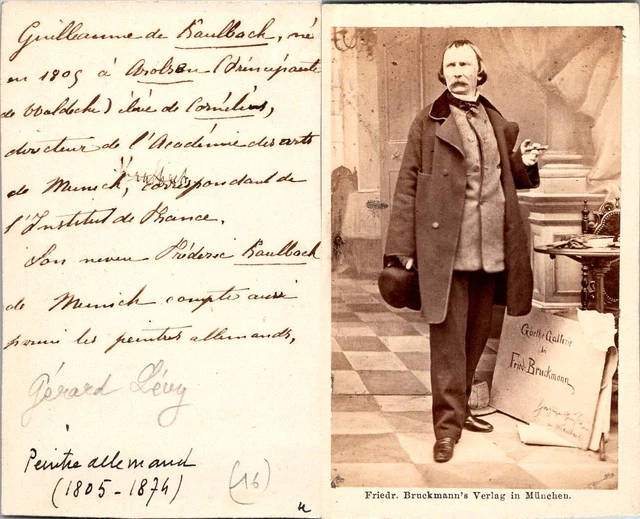 Guillaume de Kaulbach, né
en 1805 à Arolsen (Principauté
de Waldeck) élève de Cornélius,
directeur de l'Académie des arts
de Munich, correspondant de
l'Institut de France.
Son neveu Fréderic Kaulbach
de Munich compte aussi
parmi les peintres allemands,
Gérard Lévy
Peintre allemand
(1805-1874)
(16)
Goethe Gallerie
Friedr. Bruckmann
Friedr. Bruckmann's Verlag in München.